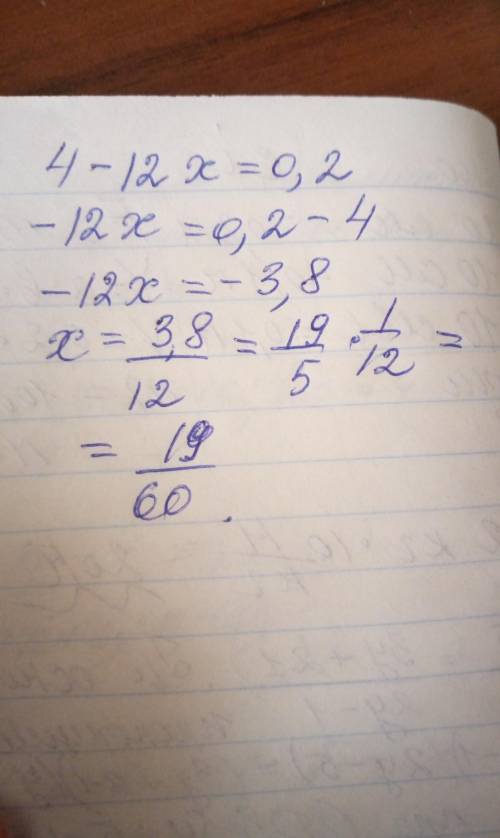 4 - 12x = 0,2
-12x = 0,2 - 4
-12x = -3,8
x = 3,8/12 = 19/5 · 1/12 =
= 19/60.